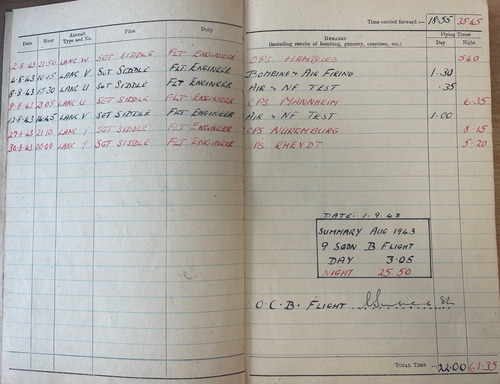 Time carried forward :— 18·55 35·45
Date Hour Aircraft Type and No. Pilot Duty Remarks (including results of bombing, gunnery, exercises, etc.) Flying Times Day Night
2·8·43 23·50 LANC W SGT SIDDLE FLT ENGINEER OPS HAMBURG 5·40
4·8·43 10·15 LANC V SGT SIDDLE FLT. ENGINEER BOMBING + AIR FIRING 1·30
8·8·43 17·30 LANC U SGT SIDDLE FLT ENGINEER AIR + NF TEST ·35
9·8·43 23·05 LANC U SGT SIDDLE FLT ENGINEER OPS MANNHEIM 6·35
12·8·43 16·45 LANC V SGT SIDDLE FLT ENGINEER AIR + NF TEST 1·00
27·8·43 21·10 LANC Y SGT SIDDLE FLT ENGINEER OPS NUREMBURG 8·15
30·8·43 00·09 LANC Y SGT SIDDLE FLT ENGINEER OPS RHEYDT 5·20
DATE· 1·9·43
SUMMARY AUG 1943
9 SQDN B FLIGHT
DAY 3·05
NIGHT 25·50
O.C.B. FLIGHT
TOTAL TIME 22·00 61·35